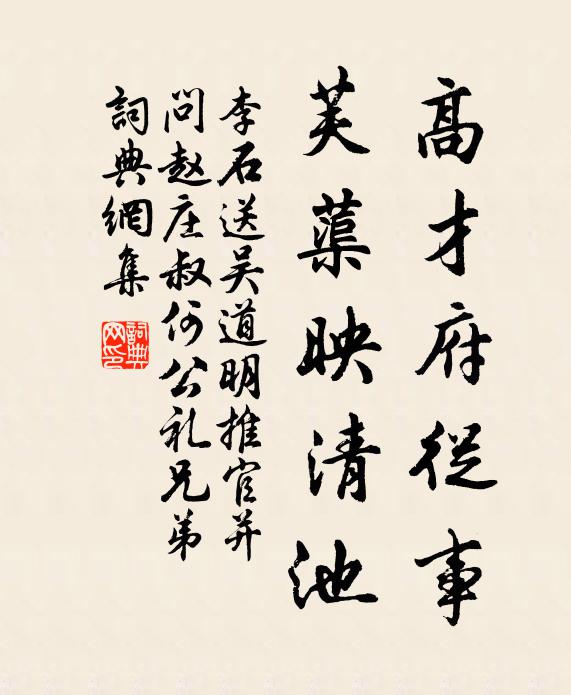 高才府從事
芙蕖映清池
李石送吴道明推官并
问赵庄叔何公礼兄弟
詞典網集
詞典网印